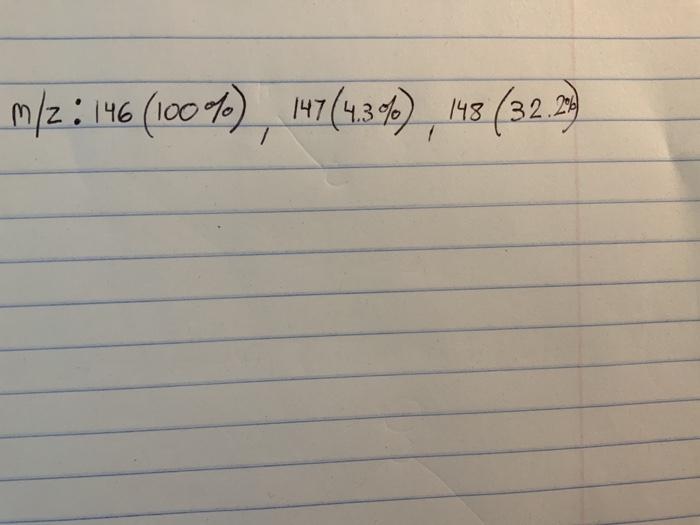 m/z: 146 (100%), 147 (4.3%), 148 (32.2%)